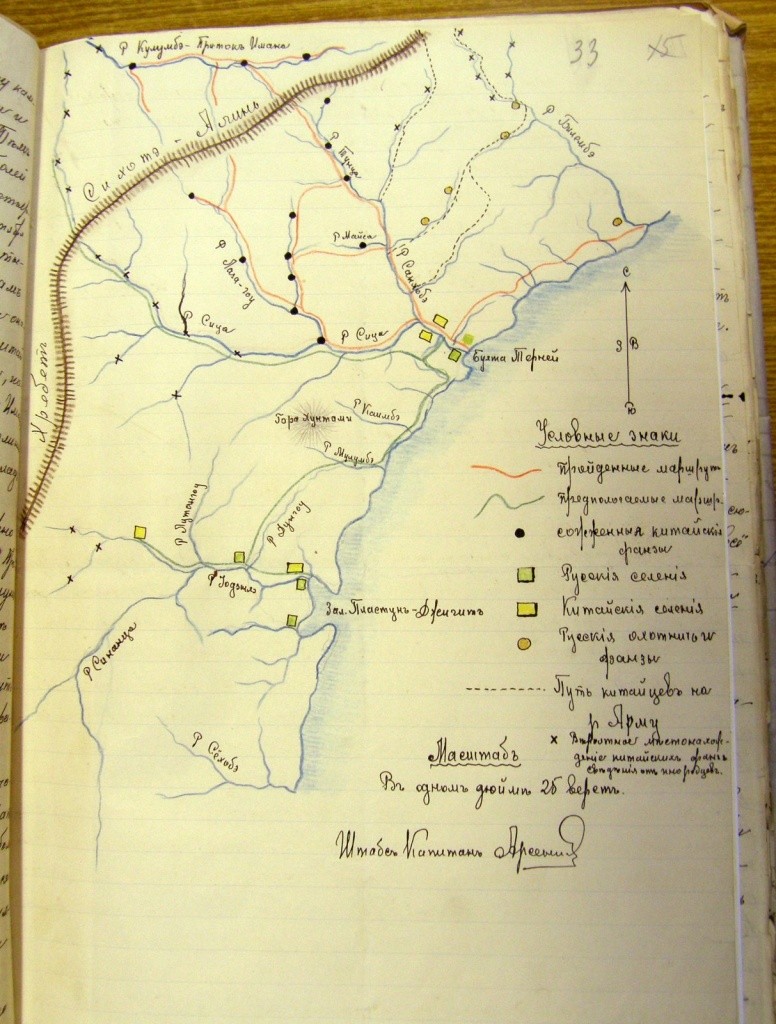 33
XI
Р Кулумбэ - Притокъ Имана
Хребетъ Сихотэ - Алинь
Р Тунца
Р Билимбэ
Р Майса
Р Санхобэ
Р Лаха-гоу
Р Сица
Р Сица
Бухта Терней
С
З В
Ю
Р Каимбэ
Гора Хунтами
Р Мулумбэ
Р Дунгоу
Р Іодзыхэ
Зал. Пластунъ-Джигитъ
Р Синанца
Р Сёхобэ
Условные знаки
Пройденные маршрут
Предполагаемые маршр
сожженныя китайскія
фанзы
Русскія селенія
Китайскія селенія
Русскія охотничьи
фанзы
Путь китайцевъ на
р Арму
Вѣроятное мѣстонахож-
деніе китайскихъ фанзъ
свѣдѣнія отъ инородцевъ.
Масштабъ
Въ одномъ дюймѣ 25 верстъ.
Штабсъ Капитанъ Арсеньев